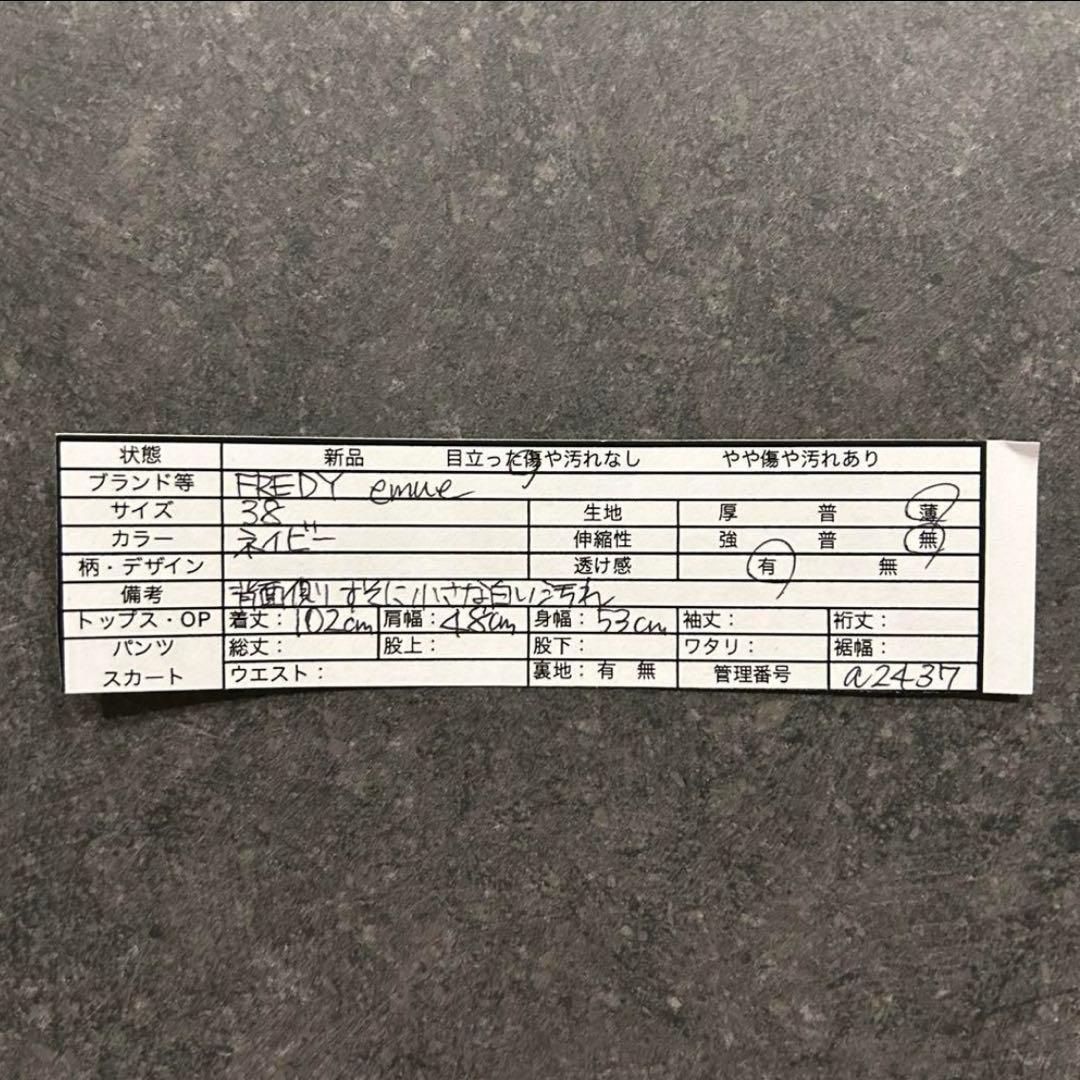 状態 新品 目立った傷や汚れなし やや傷や汚れあり
ブランド等 FREDY emue
サイズ 38 生地 厚 普 薄
カラー ネイビー 伸縮性 強 普 無
柄・デザイン 透け感 有 無
備考 背面側すそに小さな白い汚れ
トップス・OP 着丈：102cm 肩幅：48cm 身幅：53cm 袖丈： 裄丈：
パンツ 総丈： 股上： 股下： ワタリ： 裾幅：
スカート ウエスト： 裏地：有 無 管理番号 a2437